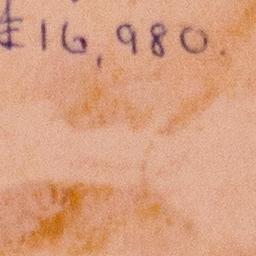 ₤16,980.